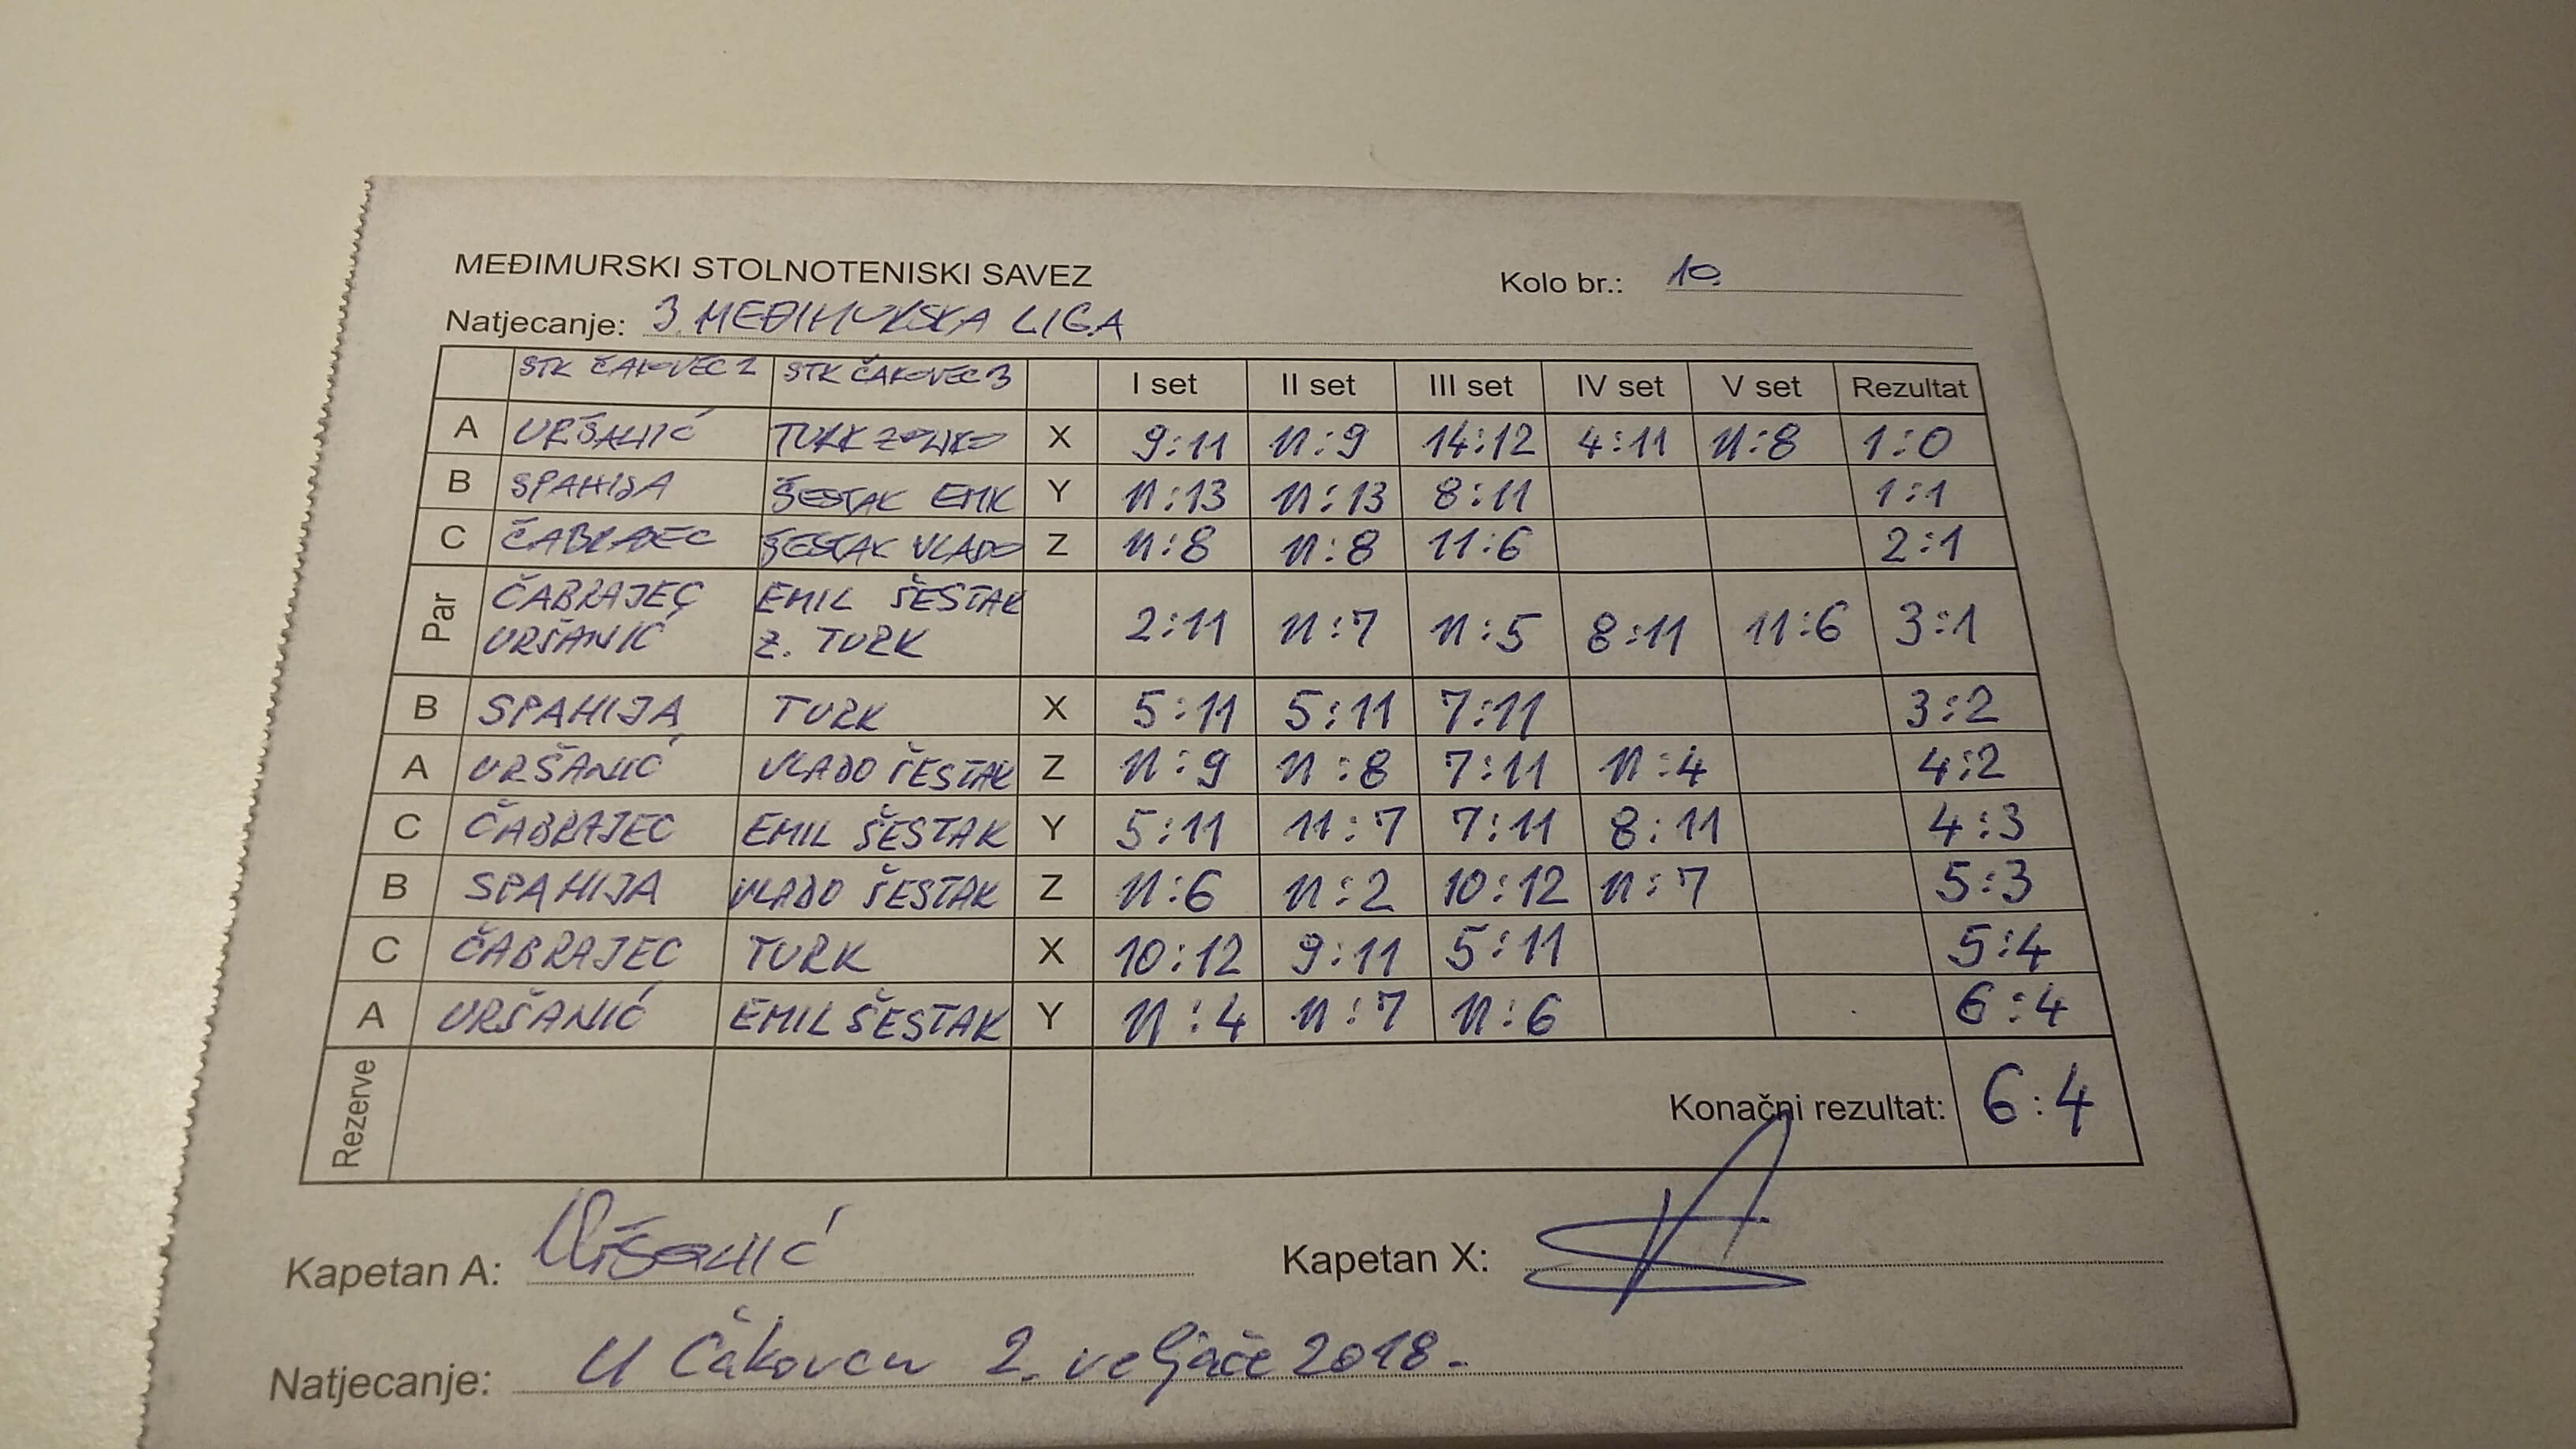 MEĐIMURSKI STOLNOTENISKI SAVEZ Kolo br.: 10.
Natjecanje: 3. MEĐIMURSKA LIGA
STK ČAKOVEC 2 STK ČAKOVEC 3 I set II set III set IV set V set Rezultat
A URŠANIĆ TURK ZELJKO X 9:11 11:9 14:12 4:11 11:8 1:0
B SPAHIJA ŠESTAK EMIL Y 11:13 11:13 8:11 1:1
C ČABRAJEC ŠESTAK VLADO Z 11:8 11:8 11:6 2:1
Par ČABRAJEC URŠANIĆ EMIL ŠESTAK Z. TURK 2:11 11:7 11:5 8:11 11:6 3:1
B SPAHIJA TURK X 5:11 5:11 7:11 3:2
A URŠANIĆ VLADO ŠESTAK Z 11:9 11:8 7:11 11:4 4:2
C ČABRAJEC EMIL ŠESTAK Y 5:11 11:7 7:11 8:11 4:3
B SPAHIJA VLADO ŠESTAK Z 11:6 11:2 10:12 11:7 5:3
C ČABRAJEC TURK X 10:12 9:11 5:11 5:4
A URŠANIĆ EMIL ŠESTAK Y 11:4 11:7 11:6 6:4
Rezerve Konačni rezultat: 6:4
Kapetan A: Uršanić Kapetan X:
Natjecanje: U Čakovcu 2. veljače 2018.